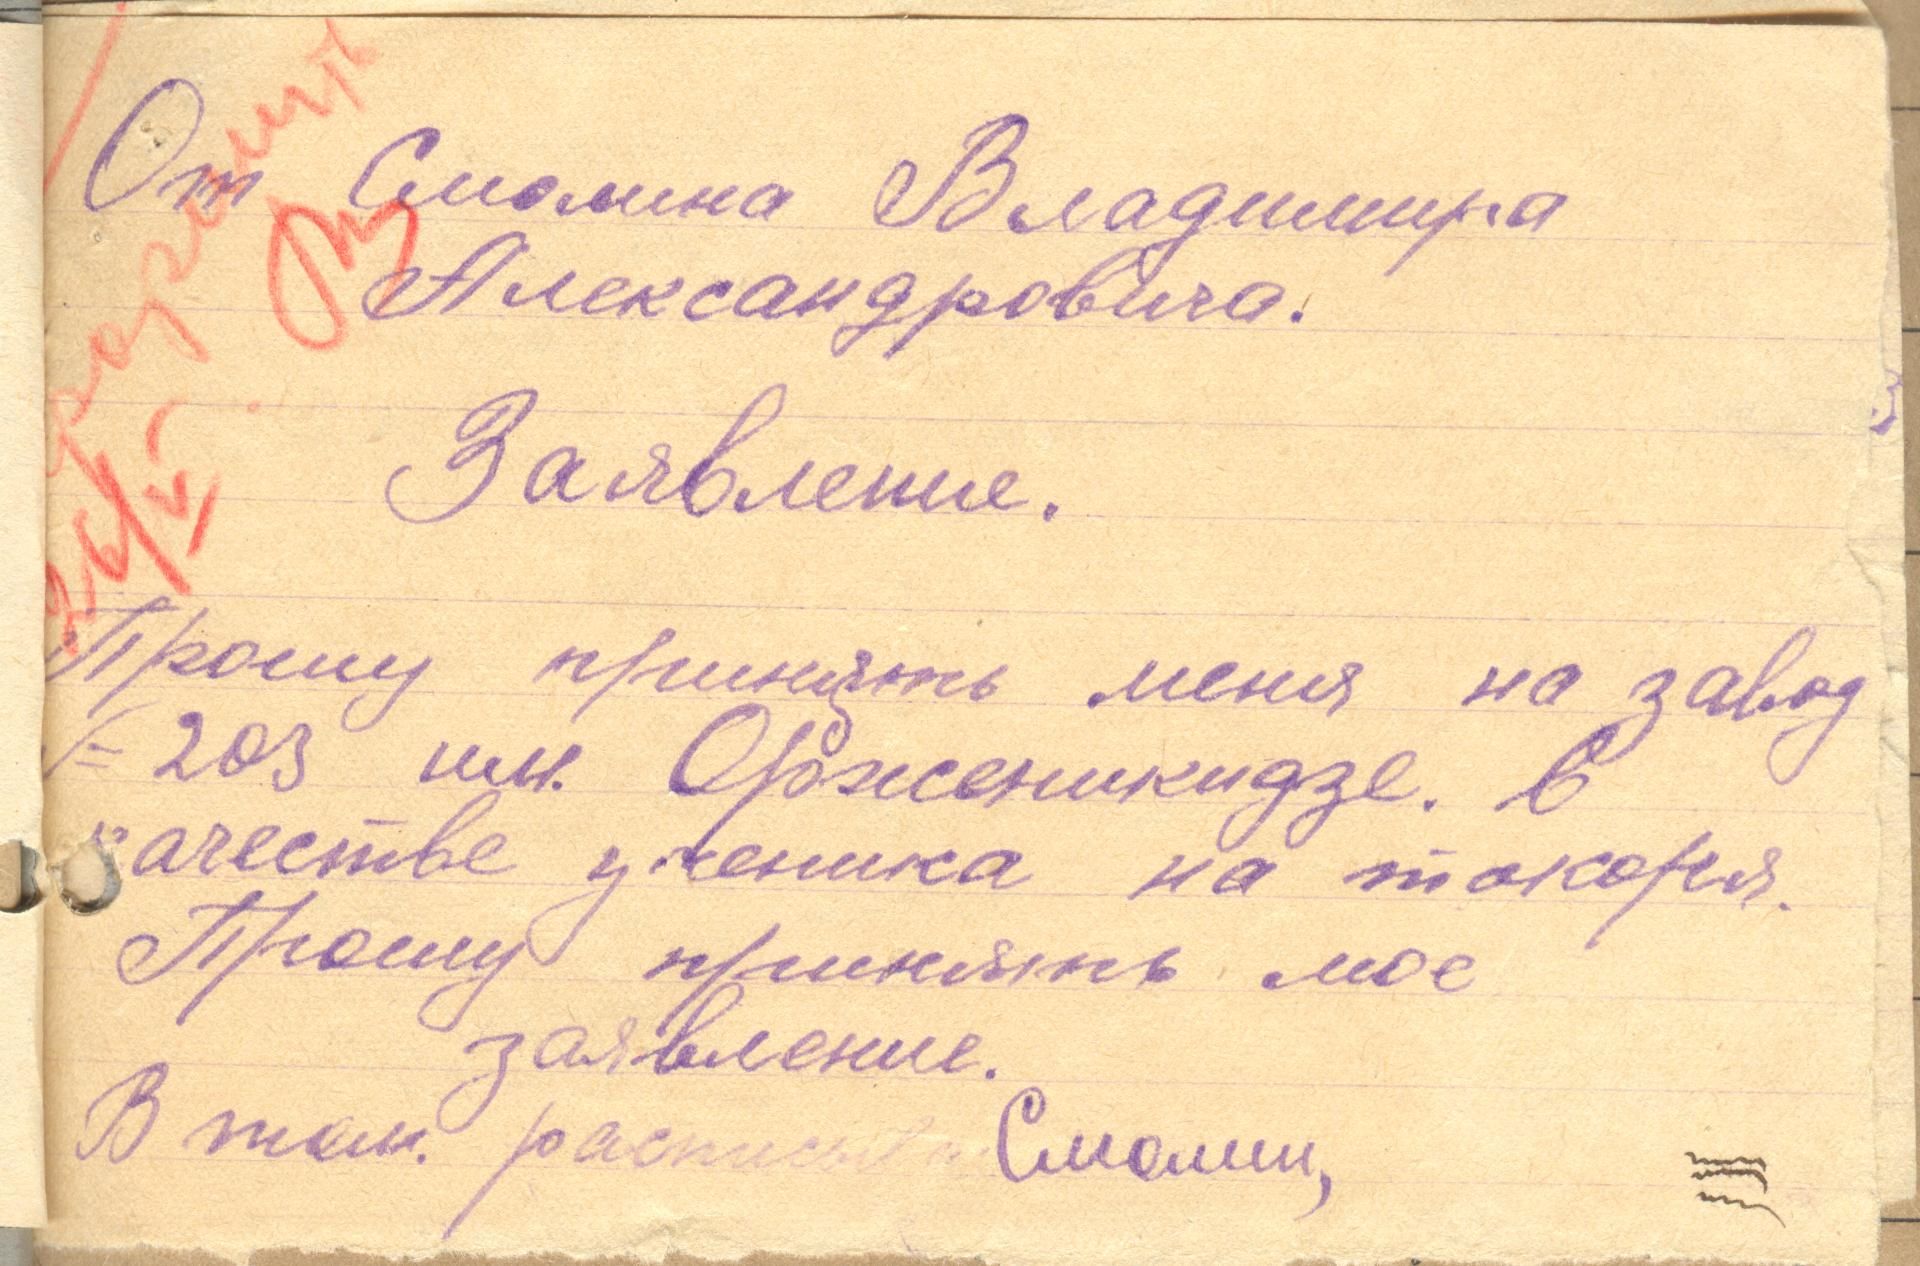 От Смолина Владимира
Александровича.
Заявление.
Прошу принять меня на завод
№ 203 им. Орженикидзе. в
качестве ученика на токоря.
Прошу принять мое
заявление.
В том. расписы Смолин,
26/V